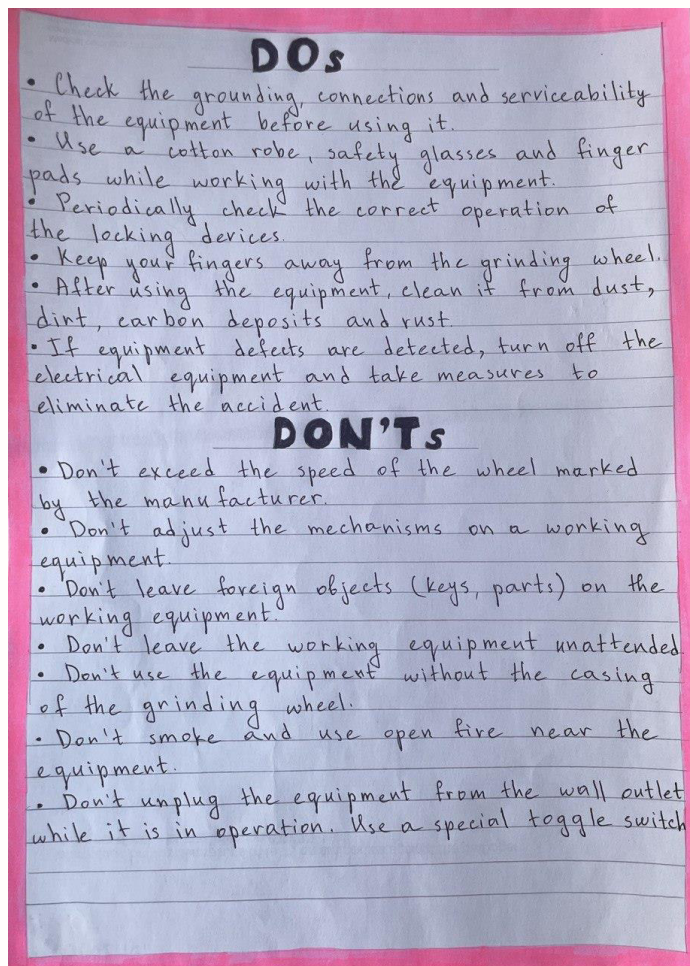 DOs
• Check the grounding, connections and serviceability
of the equipment before using it.
• Use a cotton robe, safety glasses and finger
pads while working with the equipment.
• Periodically check the correct operation of
the locking devices.
• Keep your fingers away from the grinding wheel.
• After using the equipment, clean it from dust,
dirt, carbon deposits and rust.
• If equipment defects are detected, turn off the
electrical equipment and take measures to
eliminate the accident.
DON'Ts
• Don't exceed the speed of the wheel marked
by the manufacturer.
• Don't adjust the mechanisms on a working
equipment.
• Don't leave foreign objects (keys, parts) on the
working equipment.
• Don't leave the working equipment unattended.
• Don't use the equipment without the casing
of the grinding wheel.
• Don't smoke and use open fire near the
equipment.
• Don't unplug the equipment from the wall outlet
while it is in operation. Use a special toggle switch